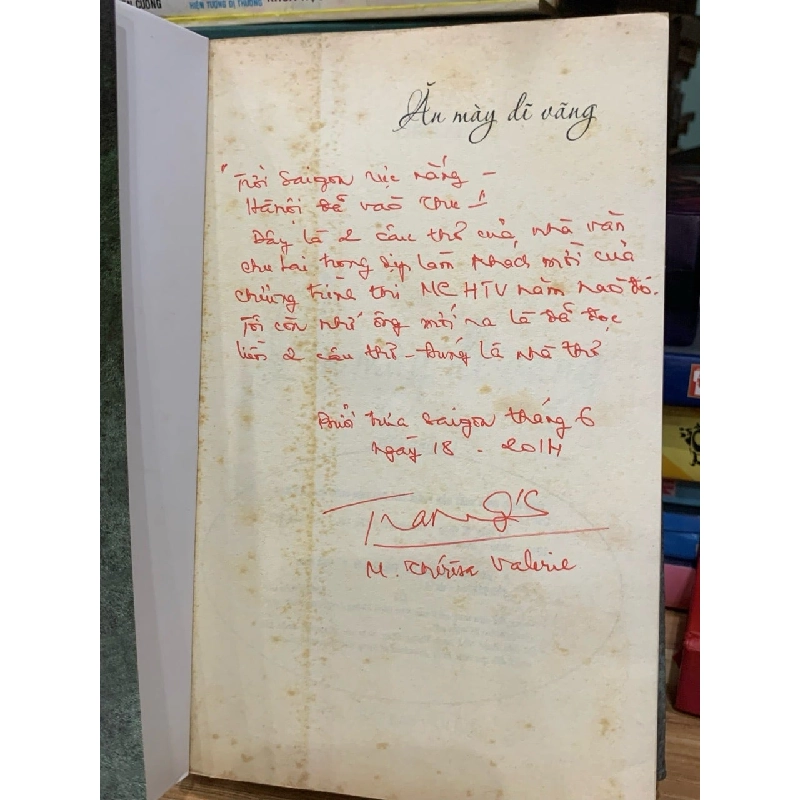 CƯỜNG
HIỆN TƯỢNG DỊ THƯỜNG
Ăn mày dĩ vãng
"Trời Saigon rực nắng –
Hànội đã vào thu – !
Đây là 2 câu thơ của nhà văn
chu lai trong dịp làm khách mời của
chương trình thi MC HTV năm nào đó.
Tôi còn nhớ ông mới ra là đã đọc
liền 2 câu thơ – Đúng là nhà thơ
Buổi trưa Saigon tháng 6
ngày 18 . 2014
Trang's
M. Thérésa Valerie